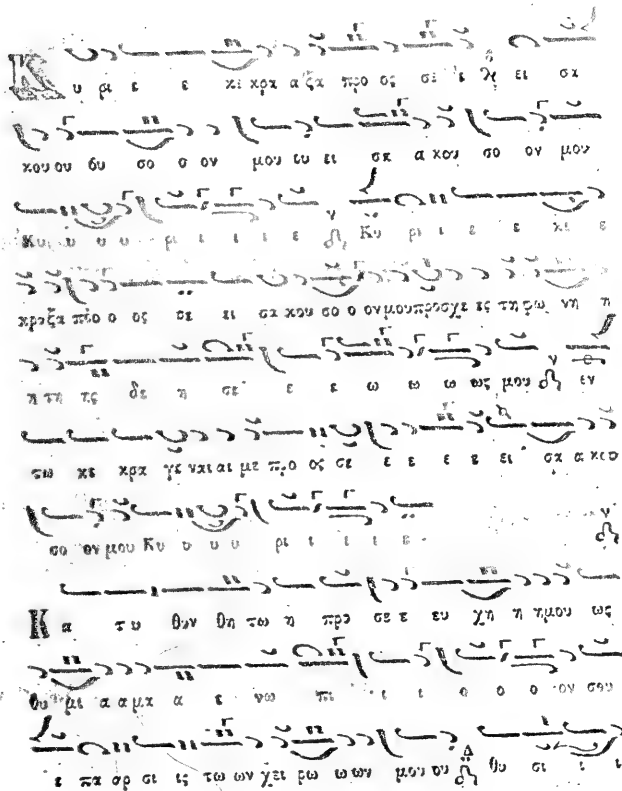 Κ υ ρι ε ε κε κρα α ξα προ ος σε ε ει σα
κου ου ου σο ο ον μου ου ει σα α κου σο ον μου
Κυ υ υ υ ρι ι ι ι ε Κυ ρι ι ε ε κε ε
κραξα προ ο ος σε ει σα κου σο ο ον μου προσχε ες τη φω νη η
η τη ης δε η σε ε ε ω ω ω ως μου εν
τω κε κρα γε ναι αι με προ ος σε ε ε ε ε ει σα α κου
σο ον μου Κυ υ υ υ ρι ι ι ι ε
Κ α τευ θυν θη τω η προ σε ε ευ χη η η μου ως
θυ μι α α μα α ε νω πι ι ι ο ο ο ον σου
ε πα αρ σι ις τω ων χει ρω ω ων μου ου θυ σι ι ι